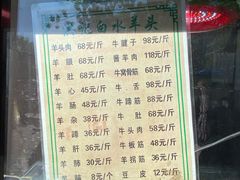 白水羊头
羊头肉 68元/斤 牛腱子 98元/斤
羊眼 68元/斤 酱羊肉 118元/斤
羊肚 68元/斤 牛窝骨筋 88元/斤
羊心 45元/斤 牛舌 98元/斤
羊肠 48元/斤 牛蹄筋 88元/斤
羊杂 38元/斤 牛肚 68元/斤
羊蹄 38元/斤 牛头肉 68元/斤
羊肝 36元/斤 牛板筋 48元/斤
羊肺 30元/斤 羊拐筋 36元/斤
羊脑 8元/个 豆皮 12元/斤